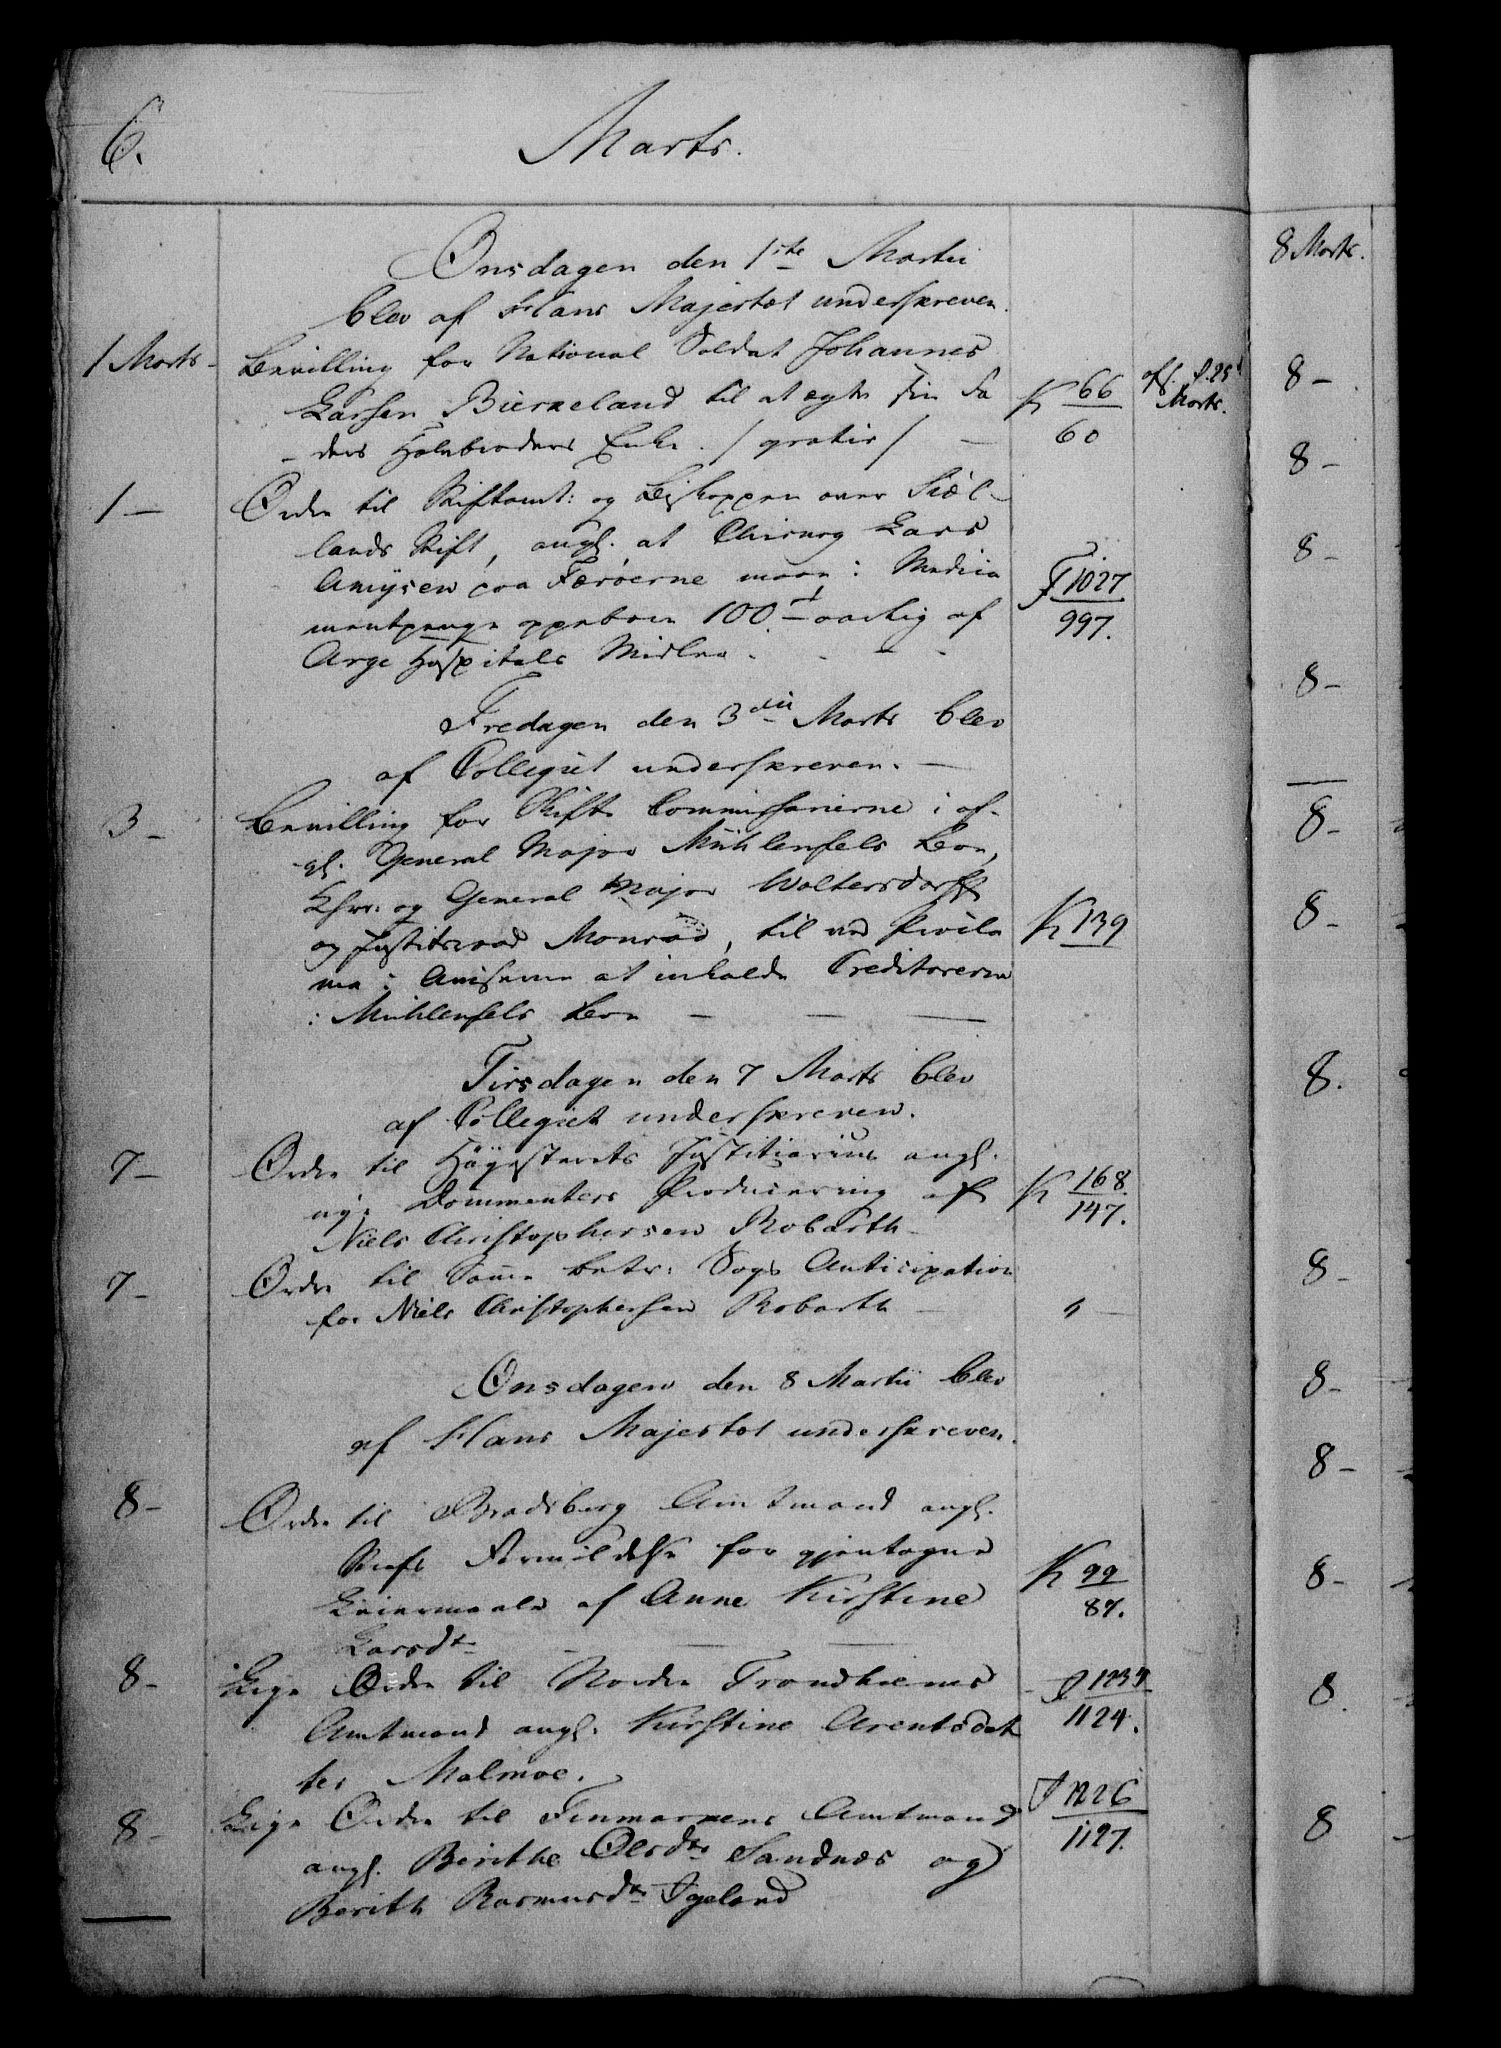 6.
Marts.
Onsdagen den 1ste Martii
blev af Hans Majestæt underskreven.
1 Marts - Bevilling for National Soldat Johannes
Larsen Bierkeland til at egte sin Fa K 66 afs. d. 25 Marts.
ders Halvbroders Enke. / gratis / — 60
1 — Ordre til Stiftamt: og Biskoppen over Siæl-
lands Stift, angl. at Chirurg Lars
Amysen paa Færöerne maae i Medica F 1027
mentpenge oppebære 100 rd aarlig af 997.
Arge Hospitals Midler. - - -
Fredagen den 3die Marts blev
af Collegiet underskreven. —
3 — Bevilling for Skifte Commissarierne i af-
gl. General Major Mühlenfels Boe,
Khrr: og General Major Waltersdorff
og Justitsraad Monrad, til ved Procla K 139
ma i Aviserne at inkalde Creditorerne
i Mühlenfels Boe — — —
Tirsdagen den 7 Marts blev
af Collegiet underskreven.
7 — Ordre til Höyesterets Justitiarius angl.
nye Documenters Producering af K 168
Niels Christophersen Robarth — 147.
7 — Ordre til Samme betr: Sags Anticipation
for Niels Christophersen Robarth — " —
Onsdagen den 8 Martii blev
af Hans Majestæt underskreven.
8 — Ordre til Bradsberg Amtmand angl.
Strafs Formildelse for gientagne K 99
Leiermaale af Anne Kirstine 87.
Larsdtr — — —
8 — Lige Ordre til Nordre Trondhiems
Amtmand angl. Kirstine Arentsdat 1124.
ter Malmoe.
8 — Lige Ordre til Finmarkens Amtmand 1226
angl. Berithe Olsdtr Sandnæs og 1127.
Berith Rasmusdtr Igeland
8 Marts.
8 —
8 —
8 —
8 —
8 —
8 —
8.
8 —
8 —
8 —
8 —
8
8